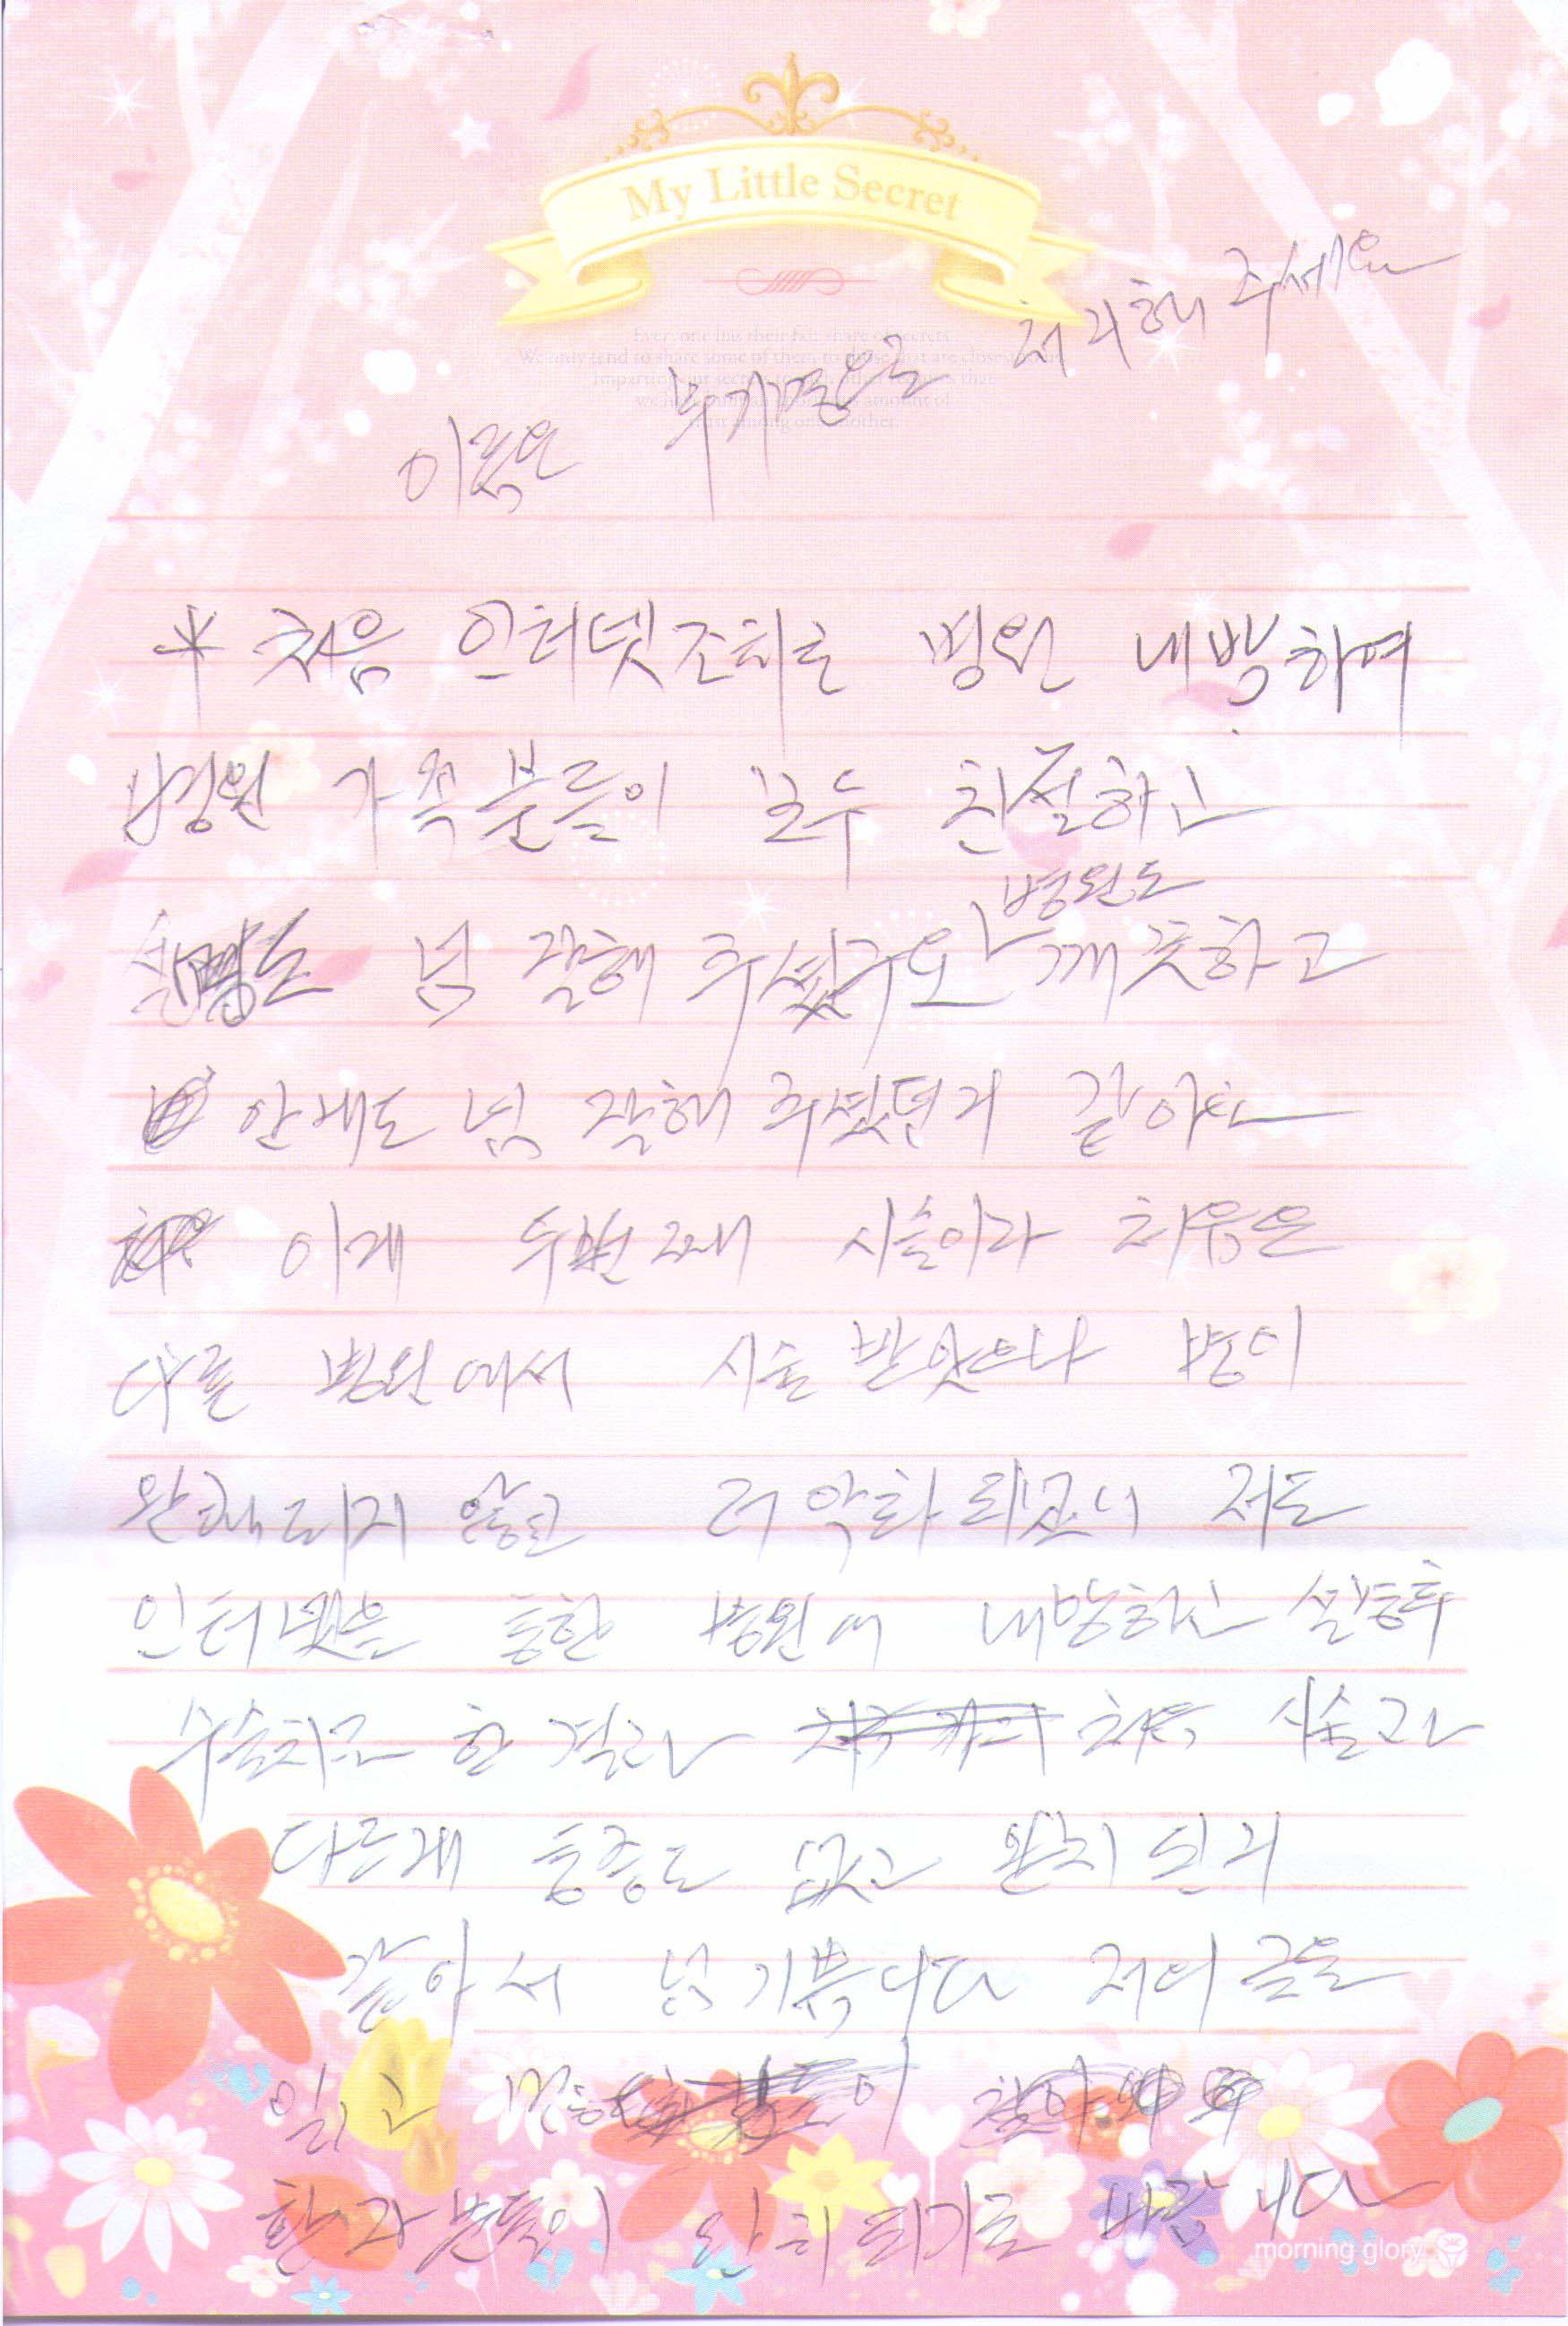 My Little Secret
Everyone has their fair share of secrets.
We only tend to share some of them to those that are closest
이름은 무기명으로 처리해 주세요
* 처음 인터넷조회로 병원 내방하여
병원 가족분들이 모두 친절하고
병원도
설명도 넘 잘해 주셨구요 깨끗하고
안내도 넘 잘해 주셨던거 같아요
이게 두번째 시술이라 처음은
다른 병원에서 시술 받았으나 병이
완쾌되지 않고 더 악화되었으니 저도
인터넷을 통한 병원에 내방하신 설명후
한 결과 처음 시술과
다르게 통증도 없고 완치된거
같아서 넘 기쁨니다 저의 글을
읽고
환자분들이 완치되기를 바랍니다
morning glory